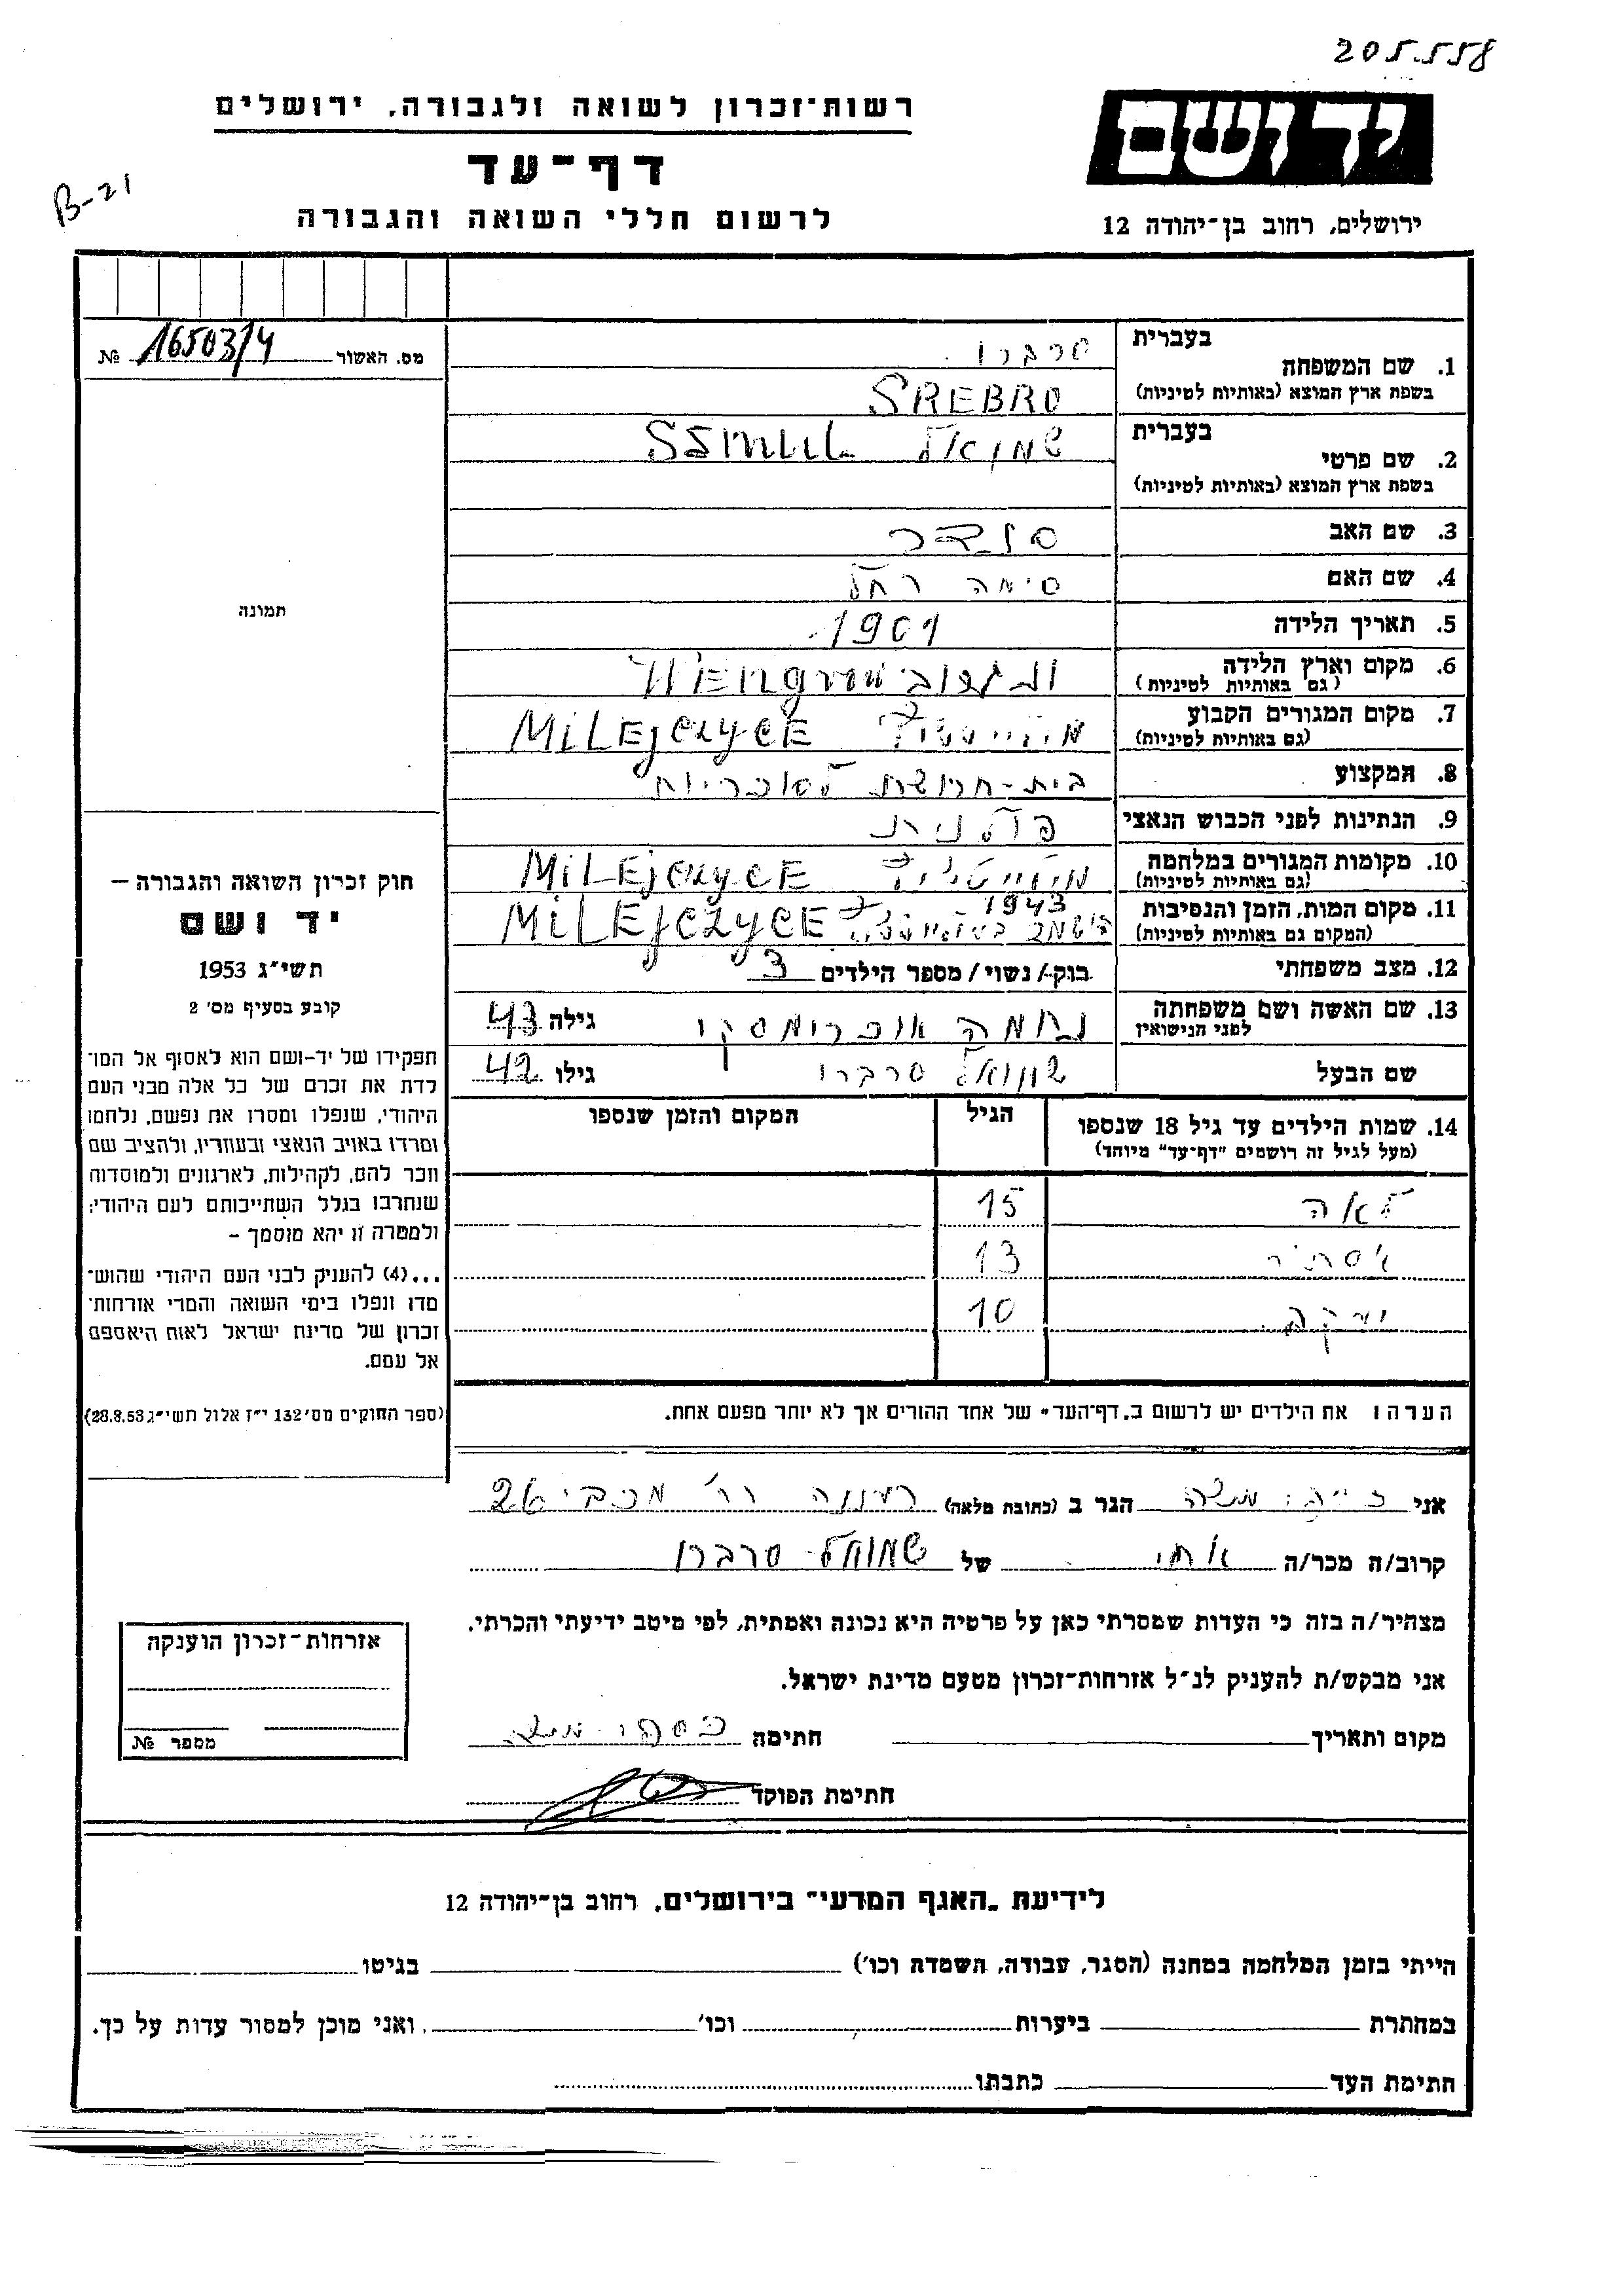 205.558
רשות־זכרון לשואה ולגבורה, ירושלים
יד ושם
דף־עד
B-21
לרשום חללי השואה והגבורה
ירושלים, רחוב בן־יהודה 12
מס. האשור 16503/4 №
בעברית
1. שם המשפחה סרברו
בשפת ארץ המוצא (באותיות לטיניות) SREBRO
בעברית שמואל
2. שם פרטי
בשפת ארץ המוצא (באותיות לטיניות)
3. שם האב סנדר
4. שם האם סימה רחל
5. תאריך הלידה 1901
6. מקום וארץ הלידה ונגרוב
(גם באותיות לטיניות)
7. מקום המגורים הקבוע MILEJCZYCE
(גם באותיות לטיניות)
8. המקצוע בית-חרושת לסוכריות
9. הנתינות לפני הכבוש הנאצי פולנית
10. מקומות המגורים במלחמה MILEJCZYCE
(גם באותיות לטיניות)
11. מקום המות, הזמן והנסיבות 1943 MILEJCZYCE
(המקום גם באותיות לטיניות)
12. מצב משפחתי רוק/ נשוי/ מספר הילדים 3
13. שם האשה ושם משפחתה נחמה גילה 43
לפני הנישואין
שם הבעל שמואל סרברו גילו 42
14. שמות הילדים עד גיל 18 שנספו הגיל המקום והזמן שנספו
(מעל לגיל זה רושמים "דף־עד" מיוחד)
לאה 15
אסתר 13
יעקב 10
הערה: את הילדים יש לרשום ב„דף־העד" של אחד ההורים אך לא יותר מפעם אחת.
תמונה
חוק זכרון השואה והגבורה –
יד ושם
תשי"ג 1953
קובע בסעיף מס' 2
תפקידו של יד-ושם הוא לאסוף אל המו־
לדת את זכרם של כל אלה מבני העם
היהודי, שנפלו ומסרו את נפשם, נלחמו
ומרדו באויב הנאצי ובעוזריו, ולהציב שם
וזכר להם, לקהילות, לארגונים ולמוסדות
שנחרבו בגלל השתייכותם לעם היהודי;
ולמטרה זו יהא מוסמך –
...(4) להעניק לבני העם היהודי שהוש־
מדו ונפלו בימי השואה והמרי אזרחות־
זכרון של מדינת ישראל לאות היאספם
אל עמם.
(ספר החוקים מס' 132 י"ז אלול תשי"ג 28.8.53)
אני משה הגר ב (כתובת מלאה) רעננה רח' מכבי 26
קרוב/ה מכר/ה אחי של שמואל סרברו
מצהיר/ה בזה כי העדות שמסרתי כאן על פרטיה היא נכונה ואמתית, לפי מיטב ידיעתי והכרתי.
אני מבקש/ת להעניק לנ"ל אזרחות־זכרון מטעם מדינת ישראל.
מקום ותאריך חתימה
חתימת הפוקד
אזרחות־זכרון הוענקה
מספר №
לידיעת „האגף המדעי" בירושלים, רחוב בן־יהודה 12
הייתי בזמן המלחמה במחנה (הסגר, עבודה, השמדה וכו') בגיטו
במחתרת ביערות וכו' ואני מוכן למסור עדות על כך.
חתימת העד כתבתו